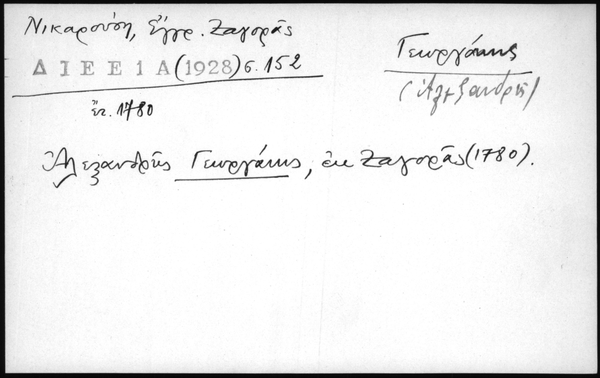 Νικαρούση, Ἔγγρ. Ζαγορᾶς
ΔΙΕΕ 1 Α (1928) σ. 152
ἔτ. 1780
Γεωργάκης
(Ἀλεξανδρῆς)
Ἀλεξανδρῆς Γεωργάκης, ἐκ Ζαγορᾶς (1780).